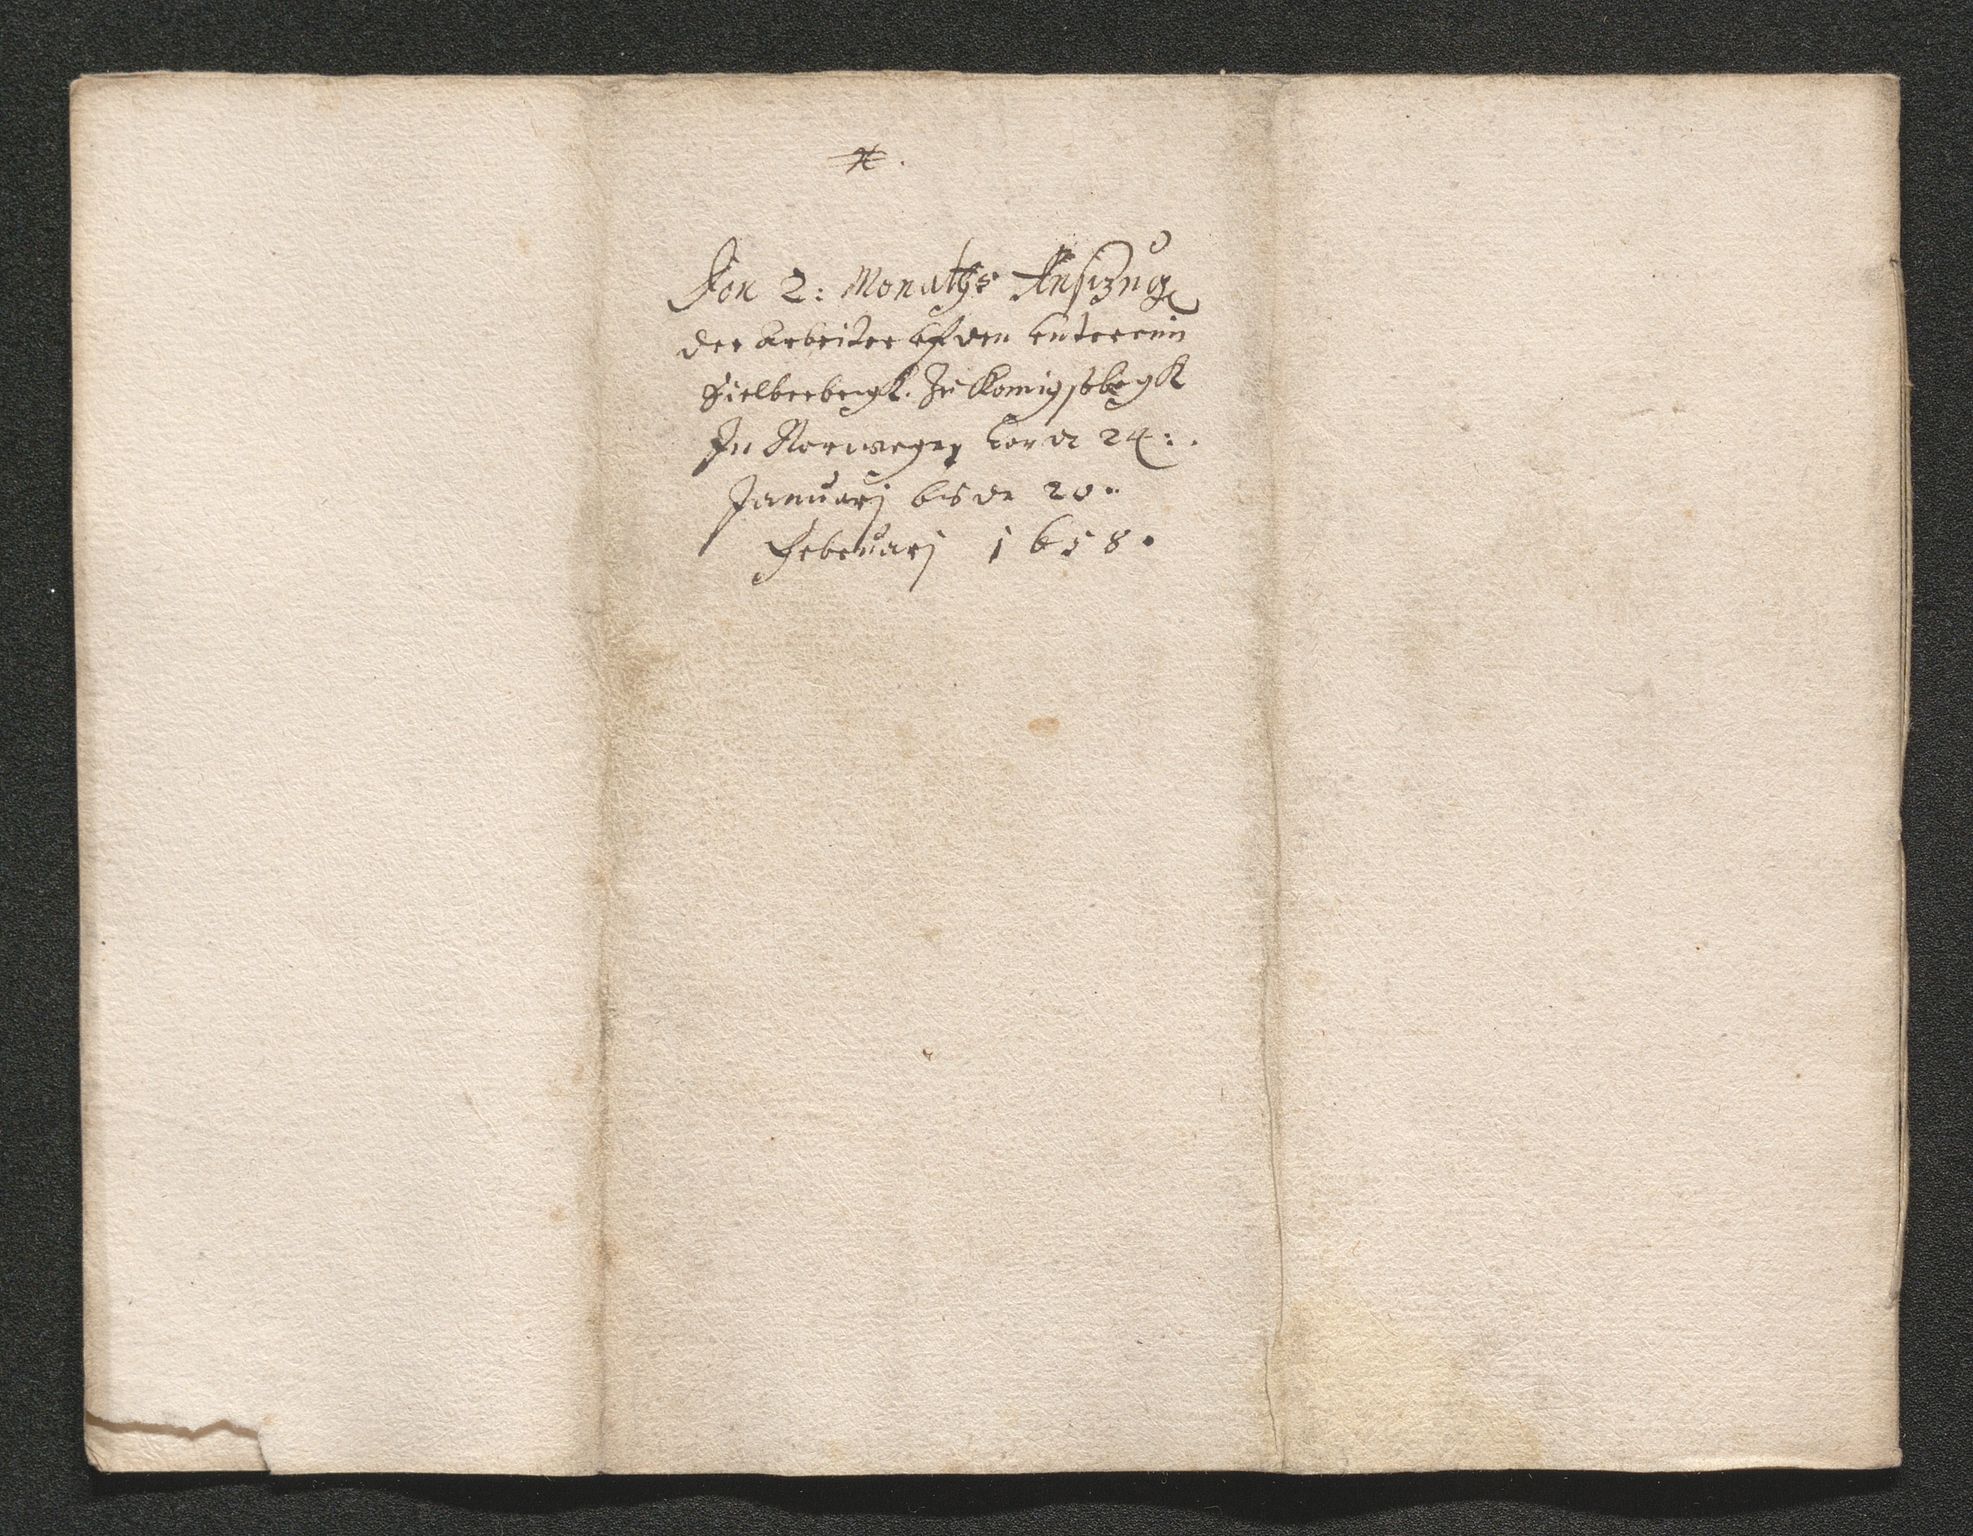 Von 2: Monaths Auszug
der Arbeiter uf den untern
Sielberbergk. Zu Konigsbegk
In Norwegen vom 24:.
Januarj bis de 20.
Februarj 1658.